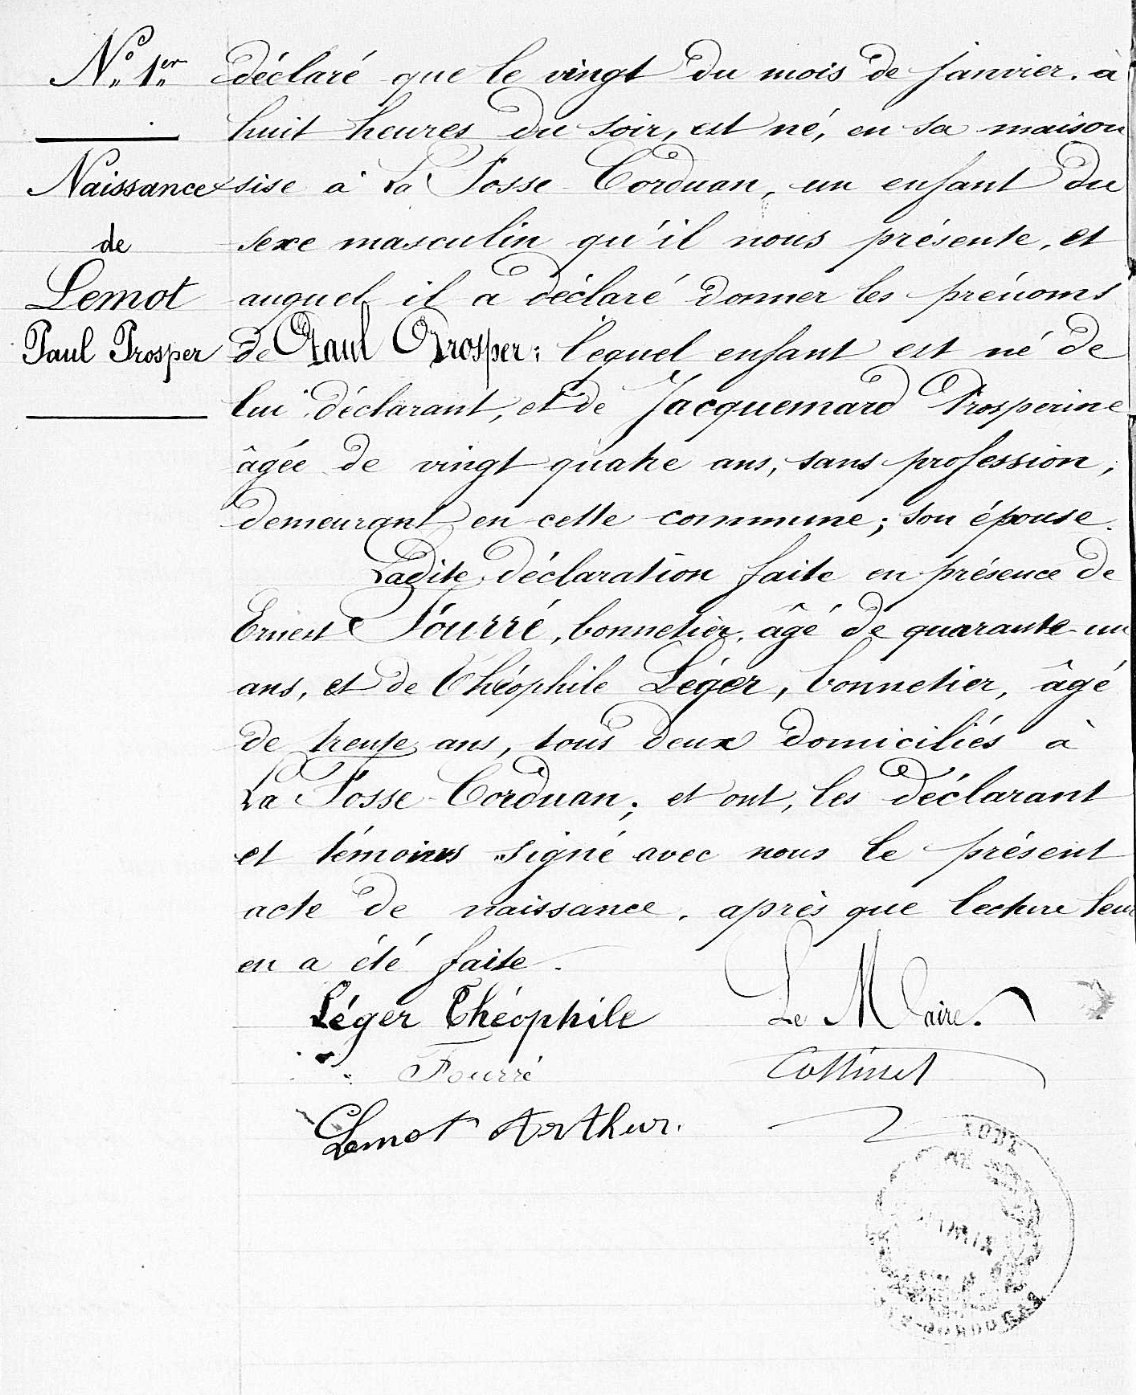 N° 1er
Naissance
de
Lemot
Paul Prosper
déclaré que le vingt du mois de janvier, à
huit heures du soir, est né, en sa maison
sise à La Fosse-Corduan, un enfant du
sexe masculin qu'il nous présente, et
auquel il a déclaré donner les prénoms
de Paul Prosper; lequel enfant est né de
lui déclarant, et de Jacquemard Prosperine
âgée de vingt quatre ans, sans profession,
demeurant en cette commune; son épouse.
Ladite déclaration faite en présence de
Ernest Fourré, bonnetier, âgé de quarante-un
ans, et de Théophile Léger, bonnetier, âgé
de trente ans, tous deux domiciliés à
La Fosse-Corduan; et ont, les déclarant
et témoins signé avec nous le présent
acte de naissance, après que lecture leur
en a été faite.
Léger Théophile
Le Maire.
Fourré
Cottinet
Lemot Arthur.